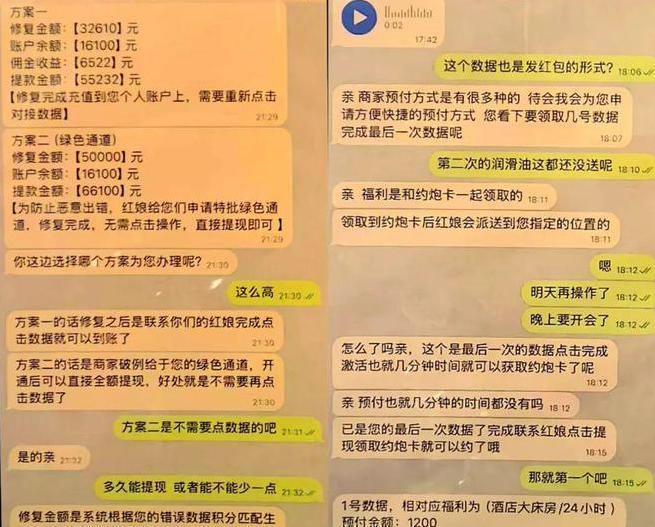 方案一
修复金额:【32610】元
账户余额:【16100】元
佣金收益:【6522】元
提款金额:【55232】元
【修复完成充值到您个人账户上，需要重新点击
对接数据】
21:29
方案二 (绿色通道)
修复金额:【50000】元
账户余额:【16100】元
提款金额:【66100】元
【为防止恶意出错，红娘给你们申请特批绿色通
道，修复完成，无需点击操作，直接提现即可 】
21:29
你这边选择哪个方案为您办理呢? 21:30
这么高 21:30
方案一的话修复之后是联系你们的红娘完成点
击数据就可以到账了
21:30
方案二的话是商家破例给于您的绿色通道，开
通后可以直接全额提现，好处就是不需要再点
击数据了
21:30
方案二是不需要点数据的吧 21:31
是的亲 21:32
多久能提现 或者能不能少一点 21:32
修复金额是系统根据您的错误数据积分匹配生
0:02
17:42
这个数据也是发红包的形式? 18:06
亲 商家预付方式是有很多种的 待会我会为您申
请方便快捷的预付方式 您看下要领取几号数据
完成最后一次数据呢
18:07
第二次的润滑油这都还没送呢 18:10
亲 福利是和约炮卡一起领取的 18:11
领取到约炮卡后红娘会派送到您指定的位置的
18:11
嗯 18:12
明天再操作了 18:12
晚上要开会了 18:12
怎么了吗亲，这个是最后一次的数据点击完成
激活也就几分钟时间就可以获取约炮卡了呢
18:12
亲 预付也就几分钟的时间都没有吗 18:12
已是您的最后一次数据了完成联系红娘点击提
现领取约炮卡就可以约了哦
18:15
那就第一个吧 18:15
1号数据，相对应福利为 (酒店大床房/24小时 )
预付金额: 1200